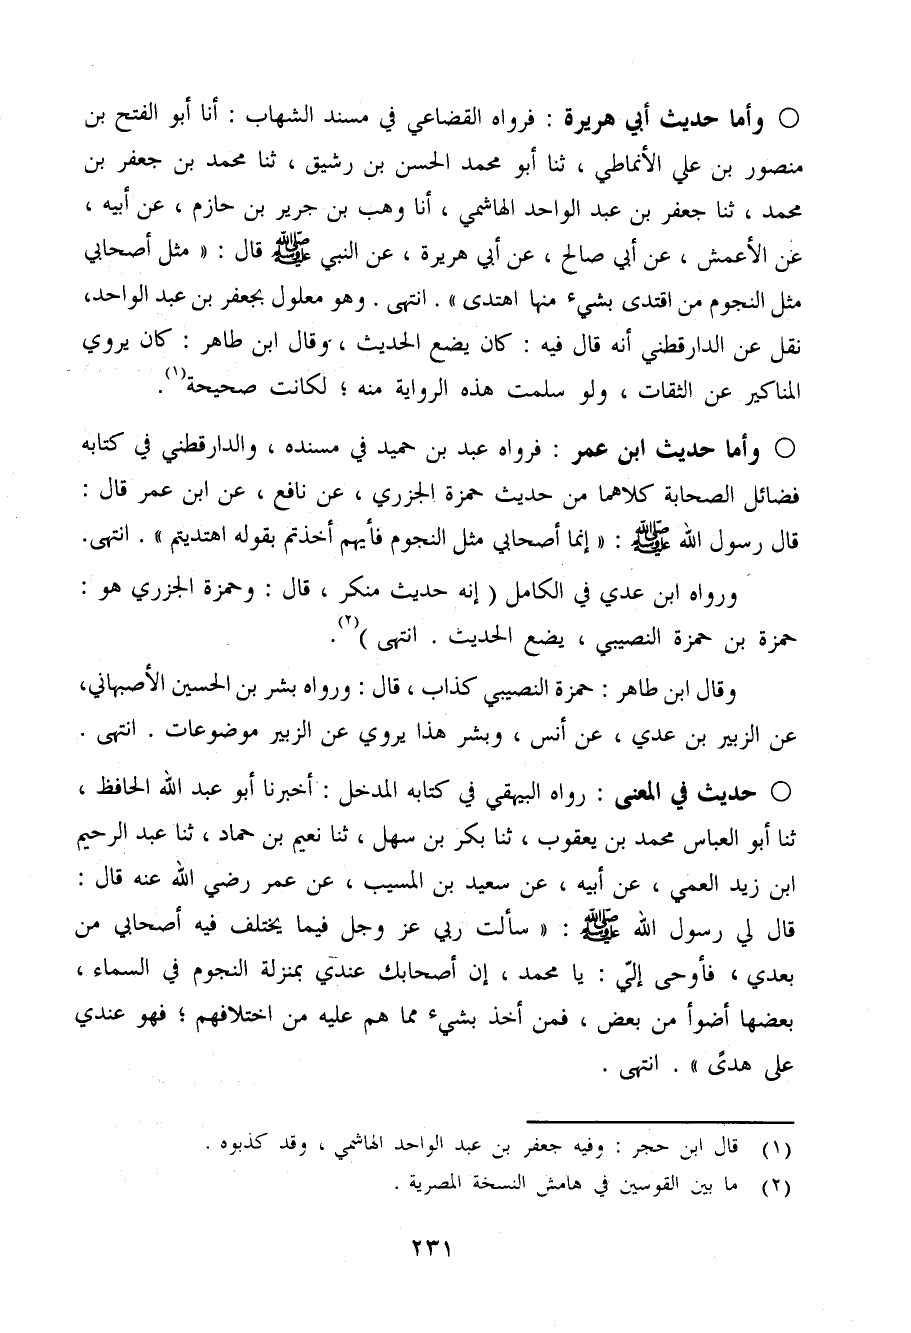 ○ وأما حديث أبي هريرة : فرواه القضاعي في مسند الشهاب : أنا أبو الفتح بن
منصور بن علي الأنماطي ، ثنا أبو محمد الحسن بن رشيق ، ثنا محمد بن جعفر بن
محمد ، ثنا جعفر بن عبد الواحد الهاشمي ، أنا وهب بن جرير بن حازم ، عن أبيه ،
عن الأعمش ، عن أبي صالح ، عن أبي هريرة ، عن النبي ﷺ قال : « مثل أصحابي
مثل النجوم من اقتدى بشيء منها اهتدى » . انتهى . وهو معلول بجعفر بن عبد الواحد،
نقل عن الدارقطني أنه قال فيه : كان يضع الحديث ، وقال ابن طاهر : كان يروي
المناكير عن الثقات ، ولو سلمت هذه الرواية منه ؛ لكانت صحيحة(١).
○ وأما حديث ابن عمر : فرواه عبد بن حميد في مسنده ، والدارقطني في كتابه
فضائل الصحابة كلاهما من حديث حمزة الجزري ، عن نافع ، عن ابن عمر قال :
قال رسول الله ﷺ : « إنما أصحابي مثل النجوم فأيهم أخذتم بقوله اهتديتم » . انتهى.
ورواه ابن عدي في الكامل ( إنه حديث منكر ، قال : وحمزة الجزري هو :
حمزة بن حمزة النصيبي ، يضع الحديث . انتهى )(٢).
وقال ابن طاهر : حمزة النصيبي كذاب ، قال : ورواه بشر بن الحسين الأصبهاني،
عن الزبير بن عدي ، عن أنس ، وبشر هذا يروي عن الزبير موضوعات . انتهى .
○ حديث في المعنى : رواه البيهقي في كتابه المدخل : أخبرنا أبو عبد الله الحافظ ،
ثنا أبو العباس محمد بن يعقوب ، ثنا بكر بن سهل ، ثنا نعيم بن حماد ، ثنا عبد الرحيم
ابن زيد العمي ، عن أبيه ، عن سعيد بن المسيب ، عن عمر رضي الله عنه قال :
قال لي رسول الله ﷺ : « سألت ربي عز وجل فيما يختلف فيه أصحابي من
بعدي ، فأوحى إليّ : يا محمد ، إن أصحابك عندي بمنزلة النجوم في السماء ،
بعضها أضوأ من بعض ، فمن أخذ بشيء مما هم عليه من اختلافهم ؛ فهو عندي
على هدىً » . انتهى .
(١) قال ابن حجر : وفيه جعفر بن عبد الواحد الهاشمي ، وقد كذبوه .
(٢) ما بين القوسين في هامش النسخة المصرية .
٢٣١